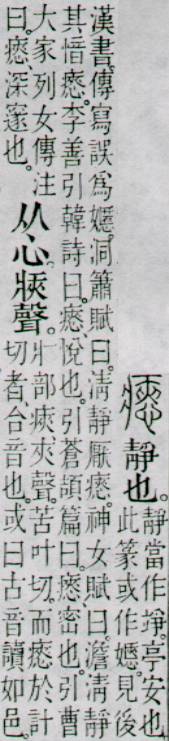 瘱 靜也。
靜當作竫。亭安也。
此篆或作嫕。見後
漢書。傳寫誤爲嬺。洞簫賦曰。清靜厭瘱。神女賦曰。澹清靜
其愔瘱。李善引韓詩曰。瘱、悅也。引蒼頡篇曰。瘱、密也。引曹
大家列女傳注
曰。瘱深邃也。
从心㾜聲。
疒部㾜夾聲。苦叶切。而瘱於計
切者、合音也。或曰古音讀如邑。